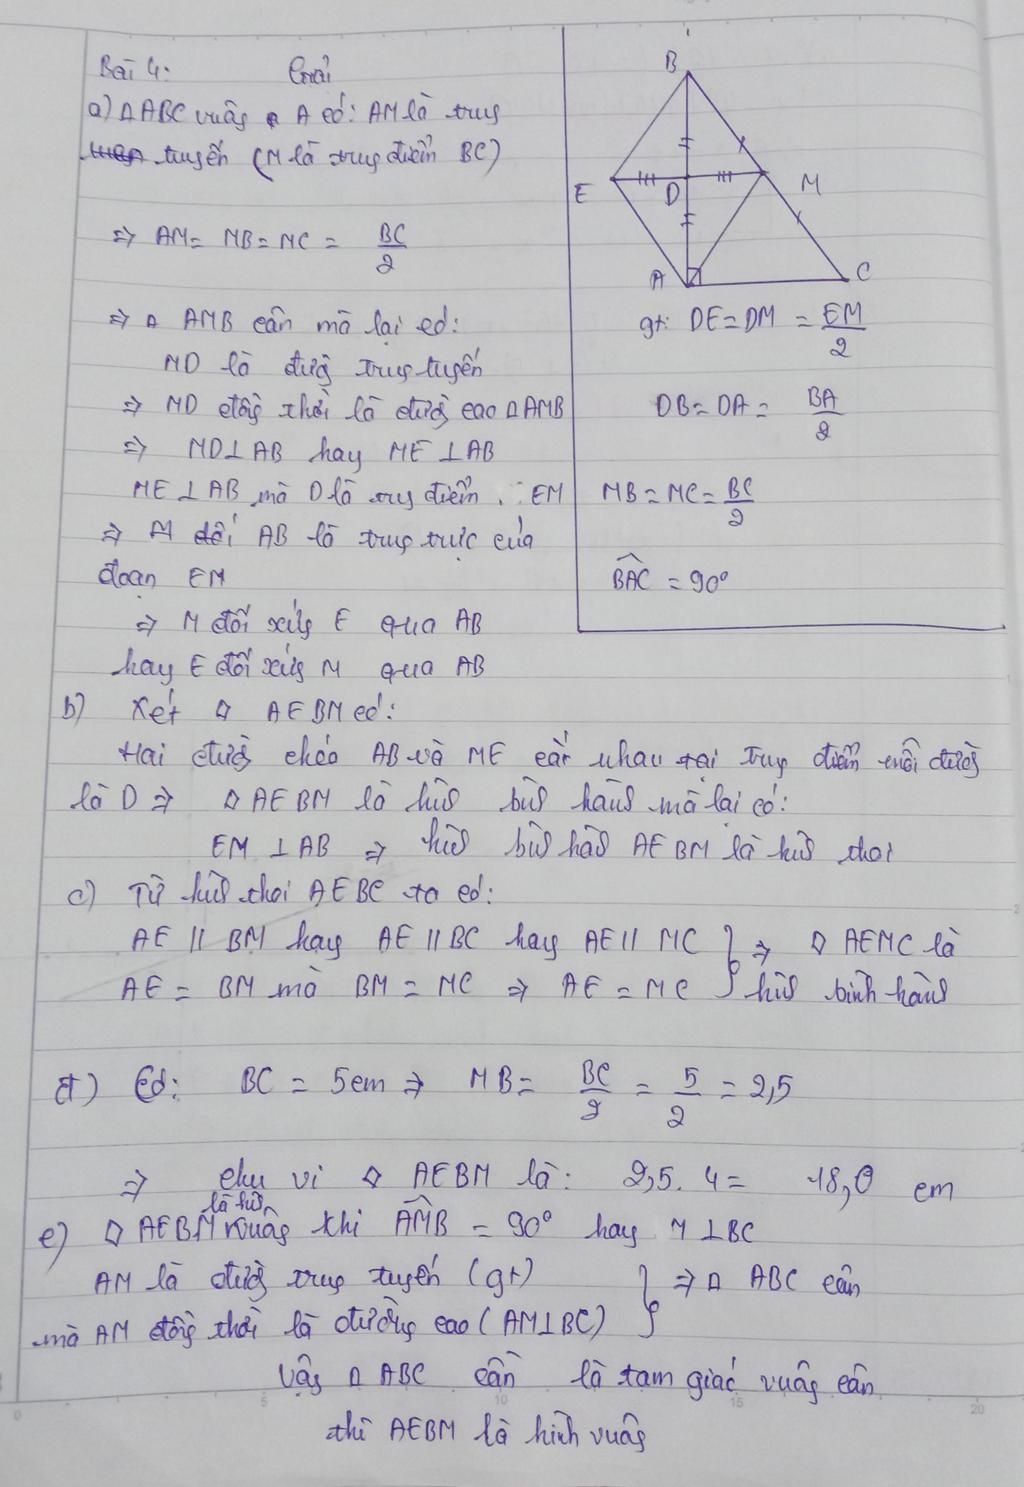 Bài 4: Giải
a) △ABC vuông ở A có: AM là trung
tuyến (M là trung điểm BC)
⇒ AM = MB = MC = BC/2
⇒ △ AMB cân mà lại có:
MD là đường trung tuyến
⇒ MD đồng thời là đường cao △AMB
⇒ MD⊥AB hay ME⊥AB
ME⊥AB mà D là trung điểm EM
⇒ AB là trung trực của
đoạn EM
⇒ M đối xứng E qua AB
hay E đối xứng M qua AB
B
E
D
M
A
C
gt: DE = DM = EM/2
DB = DA = BA/2
MB = MC = BC/2
BAC = 90°
b) Xét ◇ AEBM có:
Hai đường chéo AB và ME cắt nhau tại trung điểm mỗi đường
là D ⇒ ◇ AEBM là hình bình hành mà lại có:
EM ⊥ AB ⇒ hình bình hành AEBM là hình thoi
c) Từ hình thoi AEBC ta có:
AE // BM hay AE // BC hay AE // MC } ⇒ ◇ AEMC là
AE = BM mà BM = MC ⇒ AE = MC } hình bình hành
d) Có: BC = 5cm ⇒ MB = BC/2 = 5/2 = 2,5
⇒ chu vi ◇ AEBM là: 2,5. 4 = cm
e) ◇ AEBM là hình vuông khi AMB = 90° hay M ⊥BC
AM là đường trung tuyến (gt) } ⇒ △ ABC cân
mà AM đồng thời là đường cao (AM⊥BC) }
Vậy △ ABC cần là tam giác vuông cân
thì AEBM là hình vuông
5 10 15 20